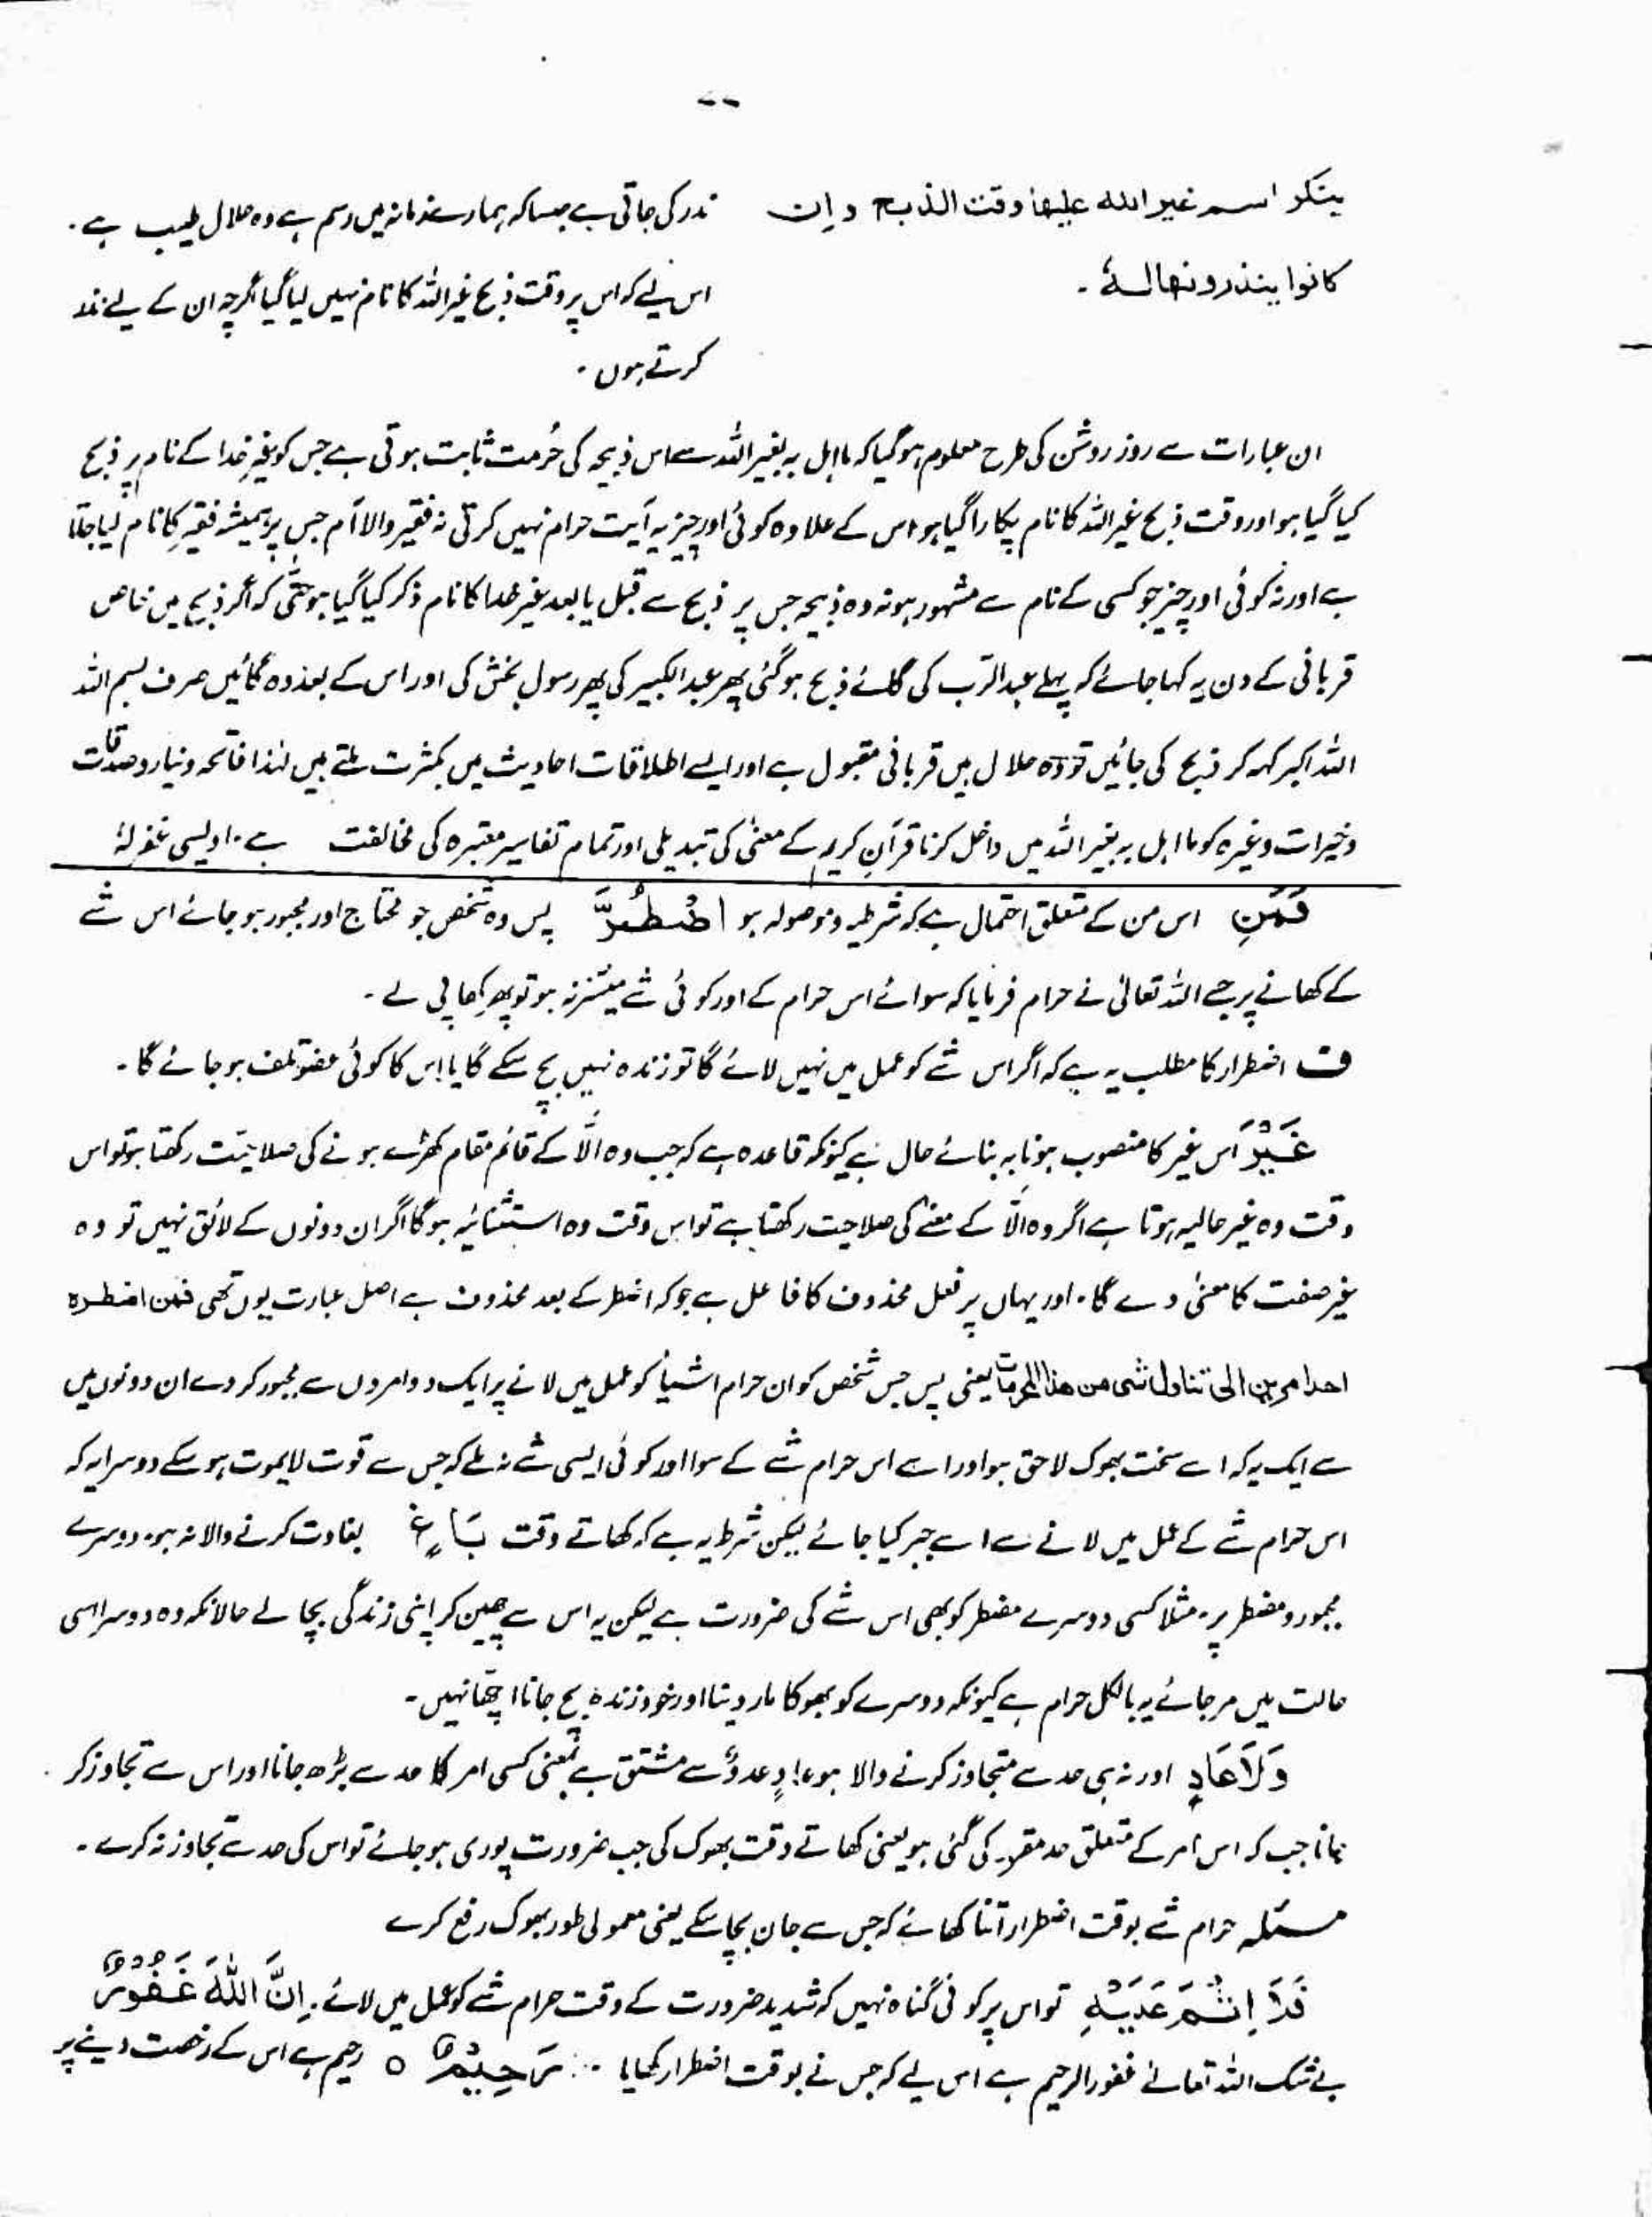 ۷۷
یذکر اسم غیر الله علیھا وقت الذبح و ان
کانوا ینذرونھا لہٗ ۔
نذر کی جاتی ہے جیسا کہ ہمارے زمانہ میں رسم ہے وہ حلال طیب ہے ۔
اس لیے کہ اس پر وقت ذبح غیر اللہ کا نام نہیں لیا گیا اگرچہ ان کے لیے نذر
کرتے ہوں ۔
ان عبارات سے روز روشن کی طرح معلوم ہو گیا کہ ما اہل بہ لغیر اللہ سے اس ذبیحہ کی حُرمت ثابت ہوتی ہے جس کو غیرِ خدا کے نام پر ذبح
کیا گیا ہو اور وقت ذبح غیر اللہ کا نام پکارا گیا ہو اس کے علاوہ کوئی اور چیز یہ آیت حرام نہیں کرتی نہ فقیر والا آم جس پر ہمیشہ فقیر کا نام لیا جاتا
ہے اور نہ کوئی اور چیز جو کسی کے نام سے مشہور ہو نہ وہ ذبیحہ جس پر ذبح سے قبل یا بعد غیر خدا کا نام ذکر کیا گیا ہو حتّٰی کہ اگر ذبح میں خاص
قربانی کے دن یہ کہا جائے کہ پہلے عبد الرّب کی گائے ذبح ہو گئی پھر عبد الکبیر کی پھر رسول بخش کی اور اس کے بعد وہ گائیں صرف بسم اللہ
اللہ اکبر کہہ کر ذبح کی جائیں تو وہ حلال ہیں قربانی مقبول ہے اور ایسے اطلاقات احادیث میں بکثرت ملتے ہیں لہٰذا فاتحہ و نیاز و صدقات
و خیرات وغیرہ کو ما اہل بہ لغیر اللہ میں داخل کرنا قرآنِ کریم کے معنیٰ کی تبدیلی اور تمام تفاسیر معتبرہ کی مخالفت ہے ۔ اویسی غفرلہٗ
فَمَنِ اس من کے متعلق احتمال ہے کہ شرطیہ و موصولہ ہو اضْطُرَّ پس وہ شخص جو محتاج اور مجبور ہو جائے اس شے
کے کھانے پر جسے اللہ تعالیٰ نے حرام فرمایا کہ سوائے اس حرام کے اور کوئی شے میسّر نہ ہو تو پھر کھا پی لے ۔
ف اضطرار کا مطلب یہ ہے کہ اگر اس شے کو عمل میں نہیں لائے گا تو زندہ نہیں بچ سکے گا یا اس کا کوئی عضو تلف ہو جائے گا ۔
غَیْرَ اس غیر کا منصوب ہونا بہ بنائے حال ہے کیونکہ قاعدہ ہے کہ جب وہ الّا کے قائم مقام کھڑے ہونے کی صلاحیّت رکھتا ہو تو اس
وقت وہ غیر حالیہ ہوتا ہے اگر وہ الّا کے معنے کی صلاحیت رکھتا ہے تو اس وقت وہ استثنائیہ ہو گا اگر ان دونوں کے لائق نہیں تو وہ
غیر صفت کا معنیٰ دے گا ۔ اور یہاں پر فعل محذوف کا فاعل ہے جو کہ اضطر کے بعد محذوف ہے اصل عبارت یوں تھی فمن اضطرہ
احد امرین الی تناول شی من ھذا المحرمات یعنی پس جس شخص کو ان حرام اشیأ کو عمل میں لانے پر ایک دو امروں سے مجبور کر دے ان دونوں میں
سے ایک یہ کہ اسے سخت بھوک لاحق ہو اور اسے اس حرام شے کے سوا اور کوئی ایسی شے نہ ملے کہ جس سے قوت لایموت ہو سکے دوسرا یہ کہ
اس حرام شے کے عمل میں لانے سے اسے جبر کیا جائے لیکن شرط یہ ہے کہ کھاتے وقت بَاغٍ بغاوت کرنے والا نہ ہو ۔ دوسرے
مجبور و مضطر پر ۔ مثلاً کسی دوسرے مضطر کو بھی اس شے کی ضرورت ہے لیکن یہ اس سے چھین کر اپنی زندگی بچا لے حالانکہ وہ دوسرا اسی
حالت میں مر جائے یہ بالکل حرام ہے کیونکہ دوسرے کو بھوکا مار دینا اور خود زندہ بچ جانا اچھا نہیں ۔
وَلَاعَادٍ اور نہ ہی حد سے متجاوز کرنے والا ہو عادٍ عدوٌ سے مشتق ہے بمعنی کسی امر کا حد سے بڑھ جانا اور اس سے تجاوز کر
جانا جب کہ اس امر کے متعلق حد مقرر کی گئی ہو یعنی کھاتے وقت بھوک کی جب ضرورت پوری ہو جائے تو اس کی حد سے تجاوز نہ کرے ۔
مسئلہ حرام شے بوقت اضطرار اتنا کھائے کہ جس سے جان بچا سکے یعنی معمولی طور بھوک رفع کرے
فَلَا اِثْمَ عَلَیْہِ تو اس پر کوئی گناہ نہیں کہ شدید ضرورت کے وقت حرام شے کو عمل میں لائے ۔ اِنَّ اللّٰہَ غَفُوْرٌ
بے شک اللہ تعالےٰ غفور الرحیم ہے اس لیے کہ جس نے بوقت اضطرار کھایا ۔ رَحِیْمٌ ○ رحیم ہے اس کے رخصت دینے پر